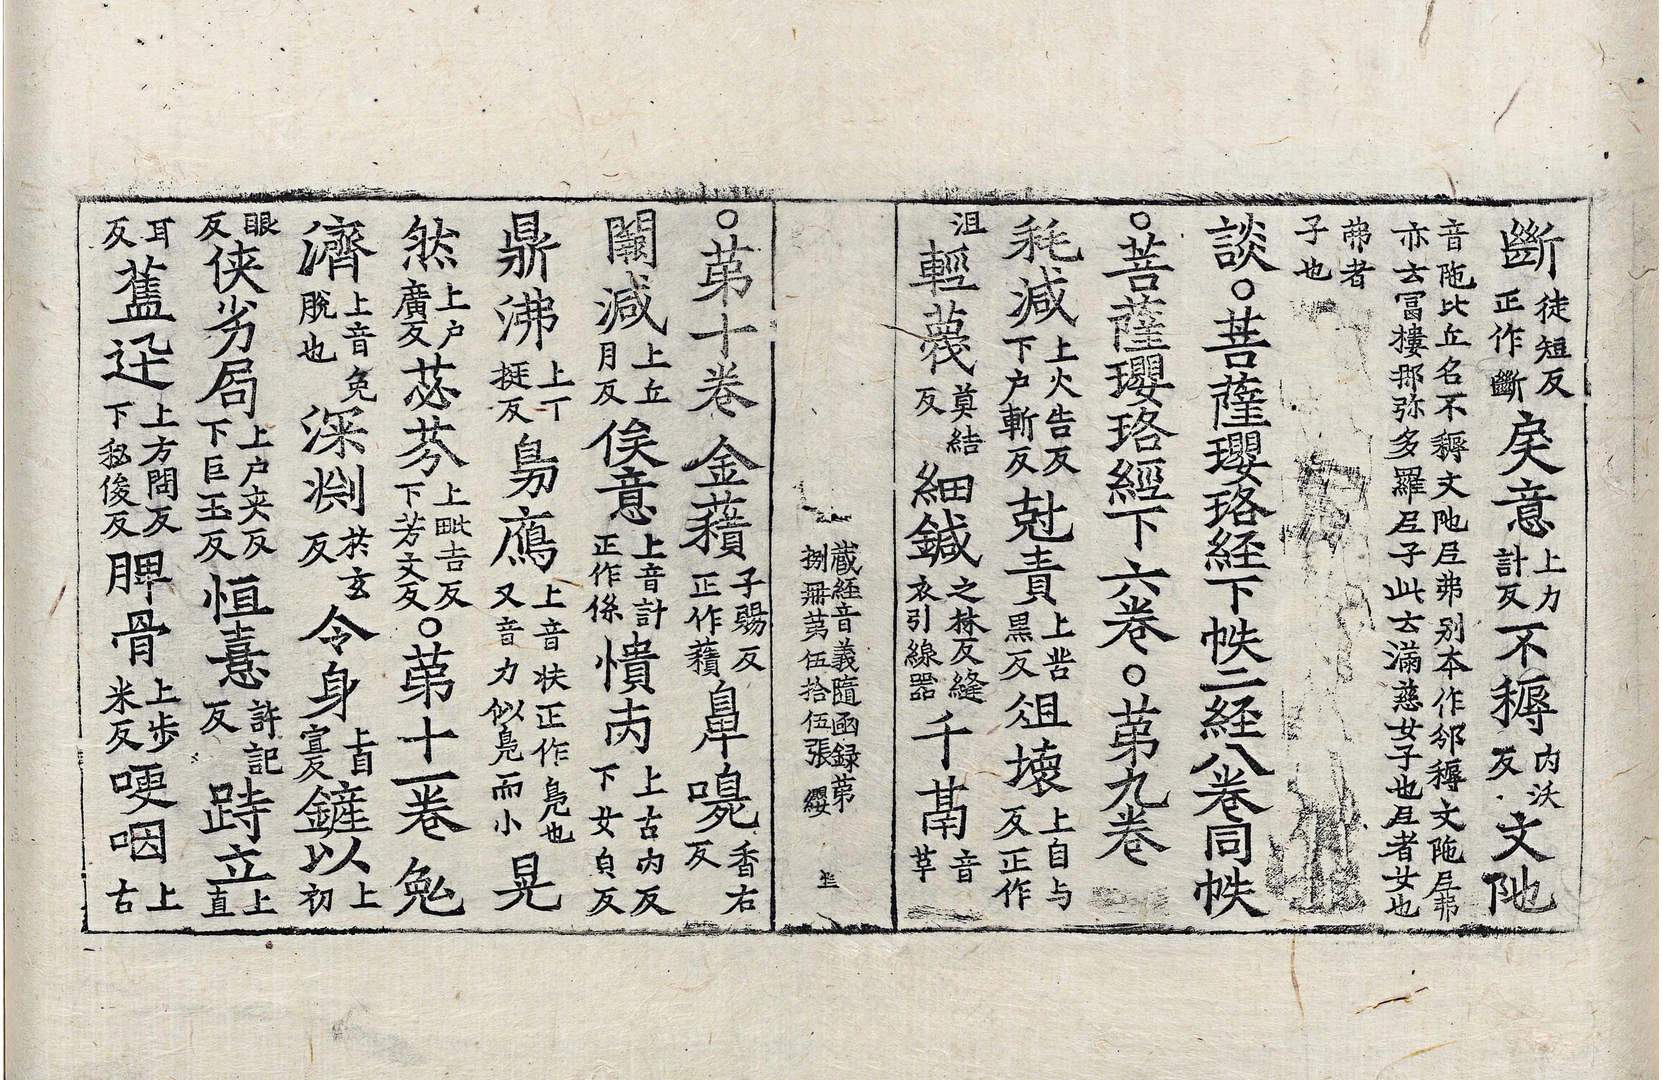 斷徒短反正作斷戾意上力計反不䅵内沃反文阤
音陁比丘名不䅵文阤𡰱弗别本作邠䅵文陁𡰱弗亦云富樓那弥多羅𡰱子此云滿慈女子也𡰱者女也
弗者子也
談○菩薩瓔珞経下帙二経八卷同帙
○菩薩瓔珞經下六卷○苐九卷
秏減上火告反下户斬反尅責上苦黒反俎壞上自与反正作
沮輕蔑莫結反細鍼之林反縫衣引線噐千萬音草
蔵経音義隨函録苐捌冊苐伍拾伍張 纓
○苐十卷 金䕆子賜反正作積鼻嗅香右反
闕減上丘月反俟意上音計正作係憒丙上古内反下女皃反
鼎沸上丁挺反鳧鴈上音扶正作鳧也又音力似鳧而小晃
然上户廣反苾芬上毗吉反下芳文反○苐十一卷 兔
濟上音免脫也深渕扵玄反令身上音宣反鏟以上初
眼反俠劣局上户夾反下巨玉反恒憙許記反跱立上直
耳反舊迅上方問反下私俊反脾骨上步米反哽咽上古